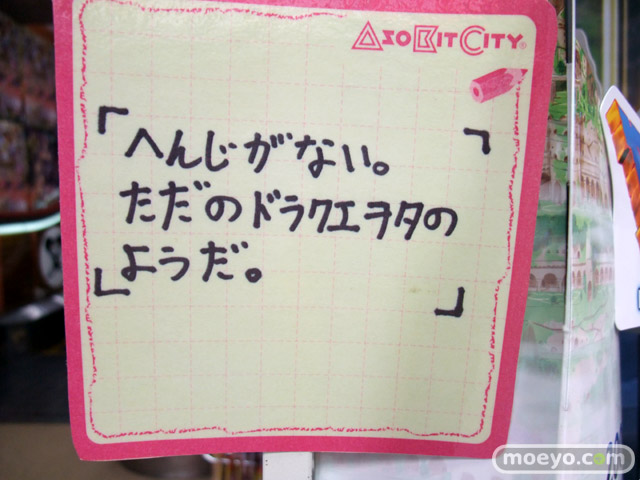 AsoBitCity®
へんじがない。
ただのドラクエヲタの
ようだ。
moeyo.com